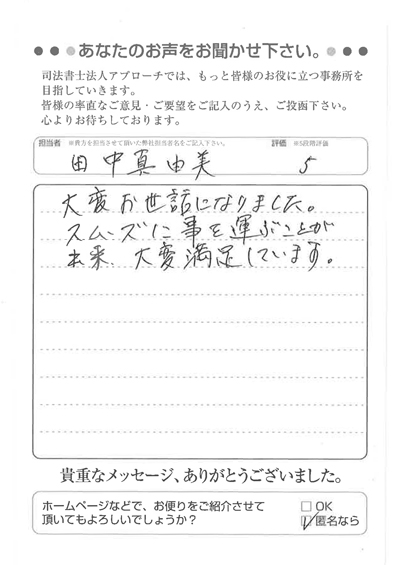 ●●●あなたのお声をお聞かせ下さい。●●●
司法書士法人アプローチでは、もっと皆様のお役に立つ事務所を
目指していきます。
皆様の率直なご意見・ご要望をご記入のうえ、ご投函下さい。
心よりお待ちしております。
担当者 ※貴方を担当させて頂いた弊社担当者名をご記入下さい。 評価 ※5段階評価
田中真由美 5
大変お世話になりました。
スムーズに事を運ぶことが
出来、大変満足しています。
貴重なメッセージ、ありがとうございました。
ホームページなどで、お便りをご紹介させて
頂いてもよろしいでしょうか？
□OK
☑匿名なら